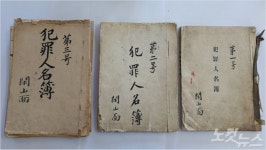 第三号
犯罪人名簿
開山面
第二号
犯罪人名簿
開山面
第一号
犯罪人名簿
開山面
노컷뉴스